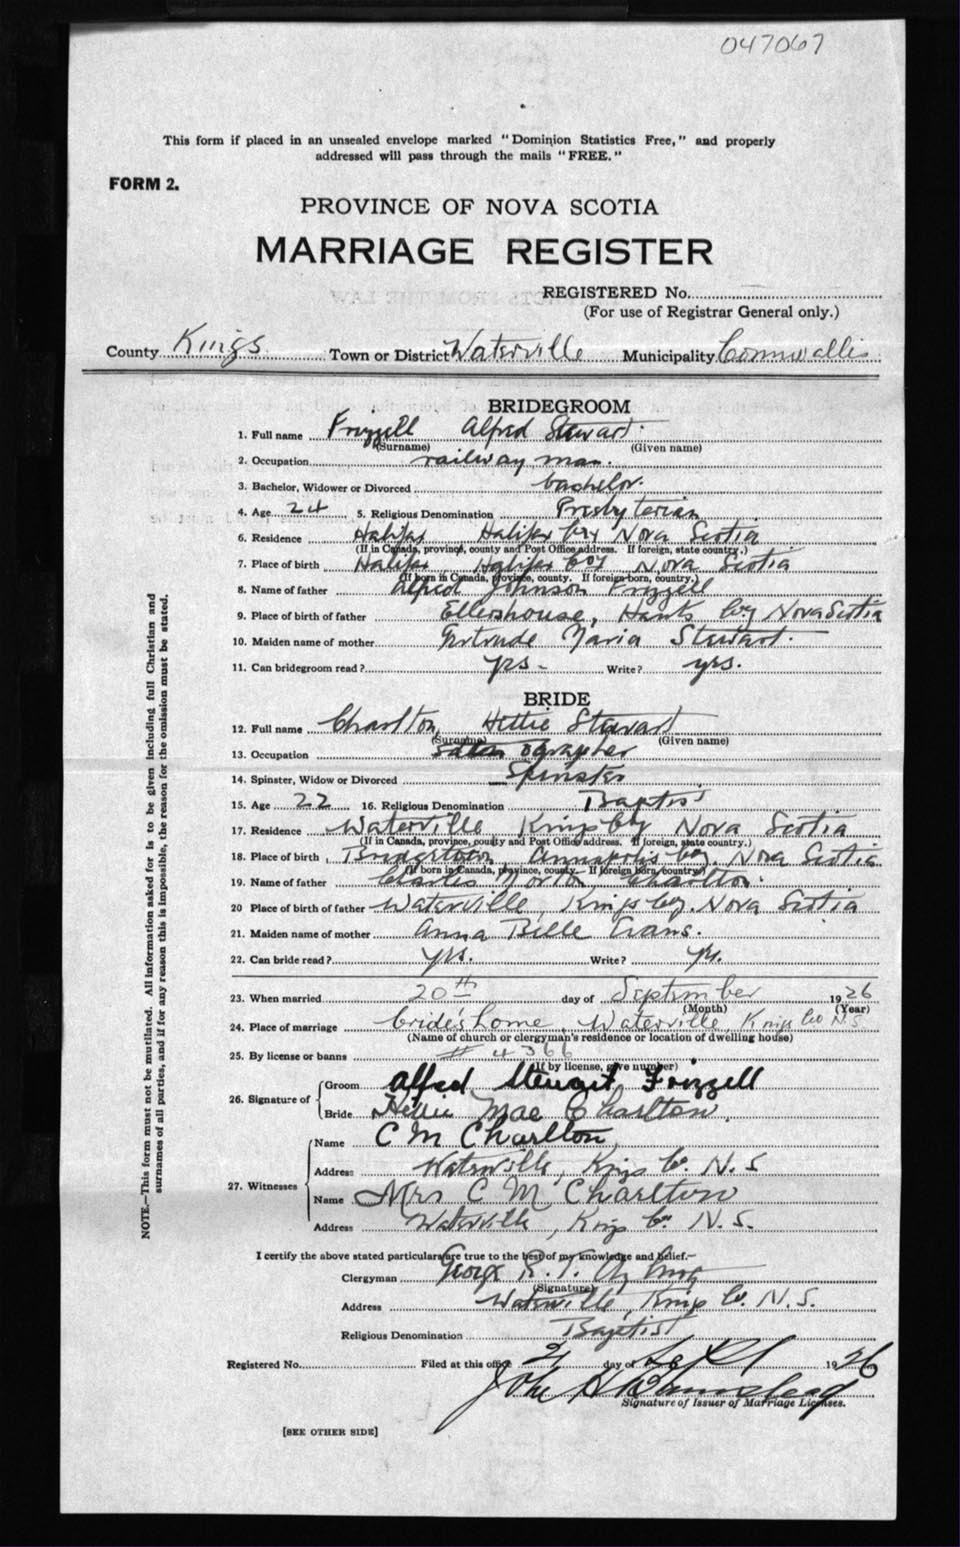 047067
This form if placed in an unsealed envelope marked "Dominion Statistics Free," and properly
addressed will pass through the mails "FREE."
FORM 2.
PROVINCE OF NOVA SCOTIA
MARRIAGE REGISTER
REGISTERED No.
(For use of Registrar General only.)
County Kings Town or District Waterville Municipality Cornwallis
BRIDEGROOM
1. Full name Frizzell Alfred Stewart
(Surname) (Given name)
2. Occupation railway man.
3. Bachelor, Widower or Divorced bachelor.
4. Age 24 5. Religious Denomination Presbyterian
6. Residence Halifax Halifax Coy Nova Scotia
(If in Canada, province, county and Post Office address. If foreign, state country.)
7. Place of birth Halifax Halifax Coy Nova Scotia
(If born in Canada, province, county. If foreign born, country.)
8. Name of father Alfred Johnson Frizzell
9. Place of birth of father Ellershouse, Hants Coy Nova Scotia
10. Maiden name of mother Gertrude Maria Stewart.
11. Can bridegroom read? yes - Write? yes.
BRIDE
12. Full name Charlton, Hettie Stewart
(Surname) (Given name)
13. Occupation
14. Spinster, Widow or Divorced Spinster
15. Age 22 16. Religious Denomination Baptist
17. Residence Waterville, Kings Coy Nova Scotia
(If in Canada, province, county and Post Office address. If foreign, state country.)
18. Place of birth Bridgetown, Annapolis Coy, Nova Scotia
(If born in Canada, province, county. If foreign born, country.)
19. Name of father Charles Norton Charlton.
20 Place of birth of father Waterville, Kings Coy. Nova Scotia
21. Maiden name of mother Anna Belle Evans.
22. Can bride read? yes. Write? yes.
23. When married 20th day of September 1926
(Month) (Year)
24. Place of marriage bride's home, Waterville, Kings Co N.S.
(Name of church or clergyman's residence or location of dwelling house)
25. By license or banns # 4366
(If by license, give number)
26. Signature of
Groom Alfred Stewart Frizzell
Bride Mae Charlton
27. Witnesses
Name C M Charlton
Address Waterville, Kings Co. N.S
Name Mrs C M Charlton
Address Waterville, Kings Co. N.S.
I certify the above stated particulars are true to the best of my knowledge and belief.—
Clergyman George R. T.
(Signature)
Address Waterville, Kings Co. N.S.
Religious Denomination Baptist
Registered No. Filed at this office 21 day of Sept 1926
John H
Signature of Issuer of Marriage Licenses.
[SEE OTHER SIDE]
NOTE.—This form must not be mutilated. All information asked for is to be given including full Christian and
surnames of all parties, and if for any reason this is impossible, the reason for the omission must be stated.